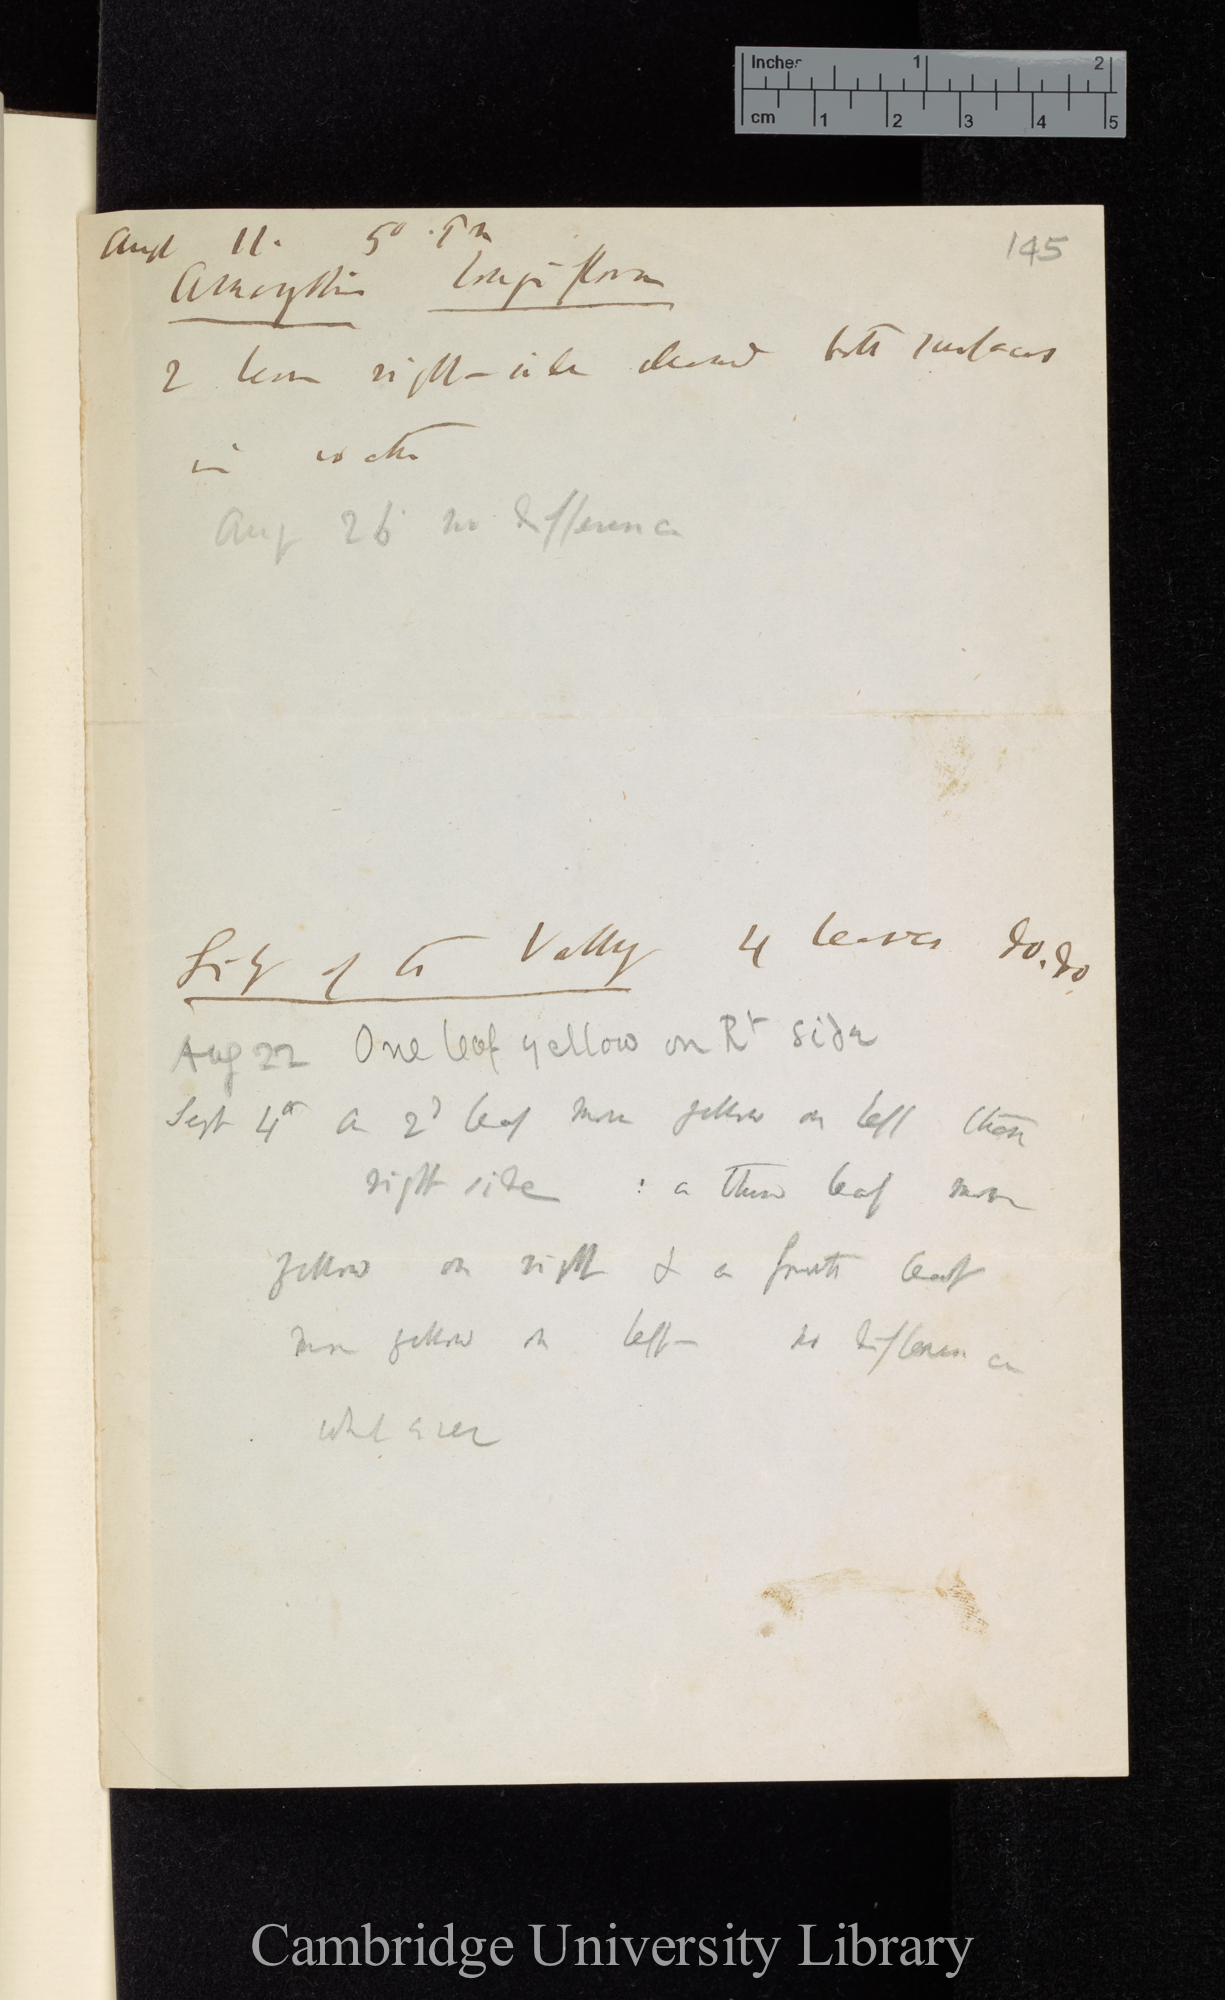 Inches 1 2
cm 1 2 3 4 5
145
Aug 11. 5° P m
Amaryllis longiflora
2 leaves right-side cleaned both surfaces
in water
Aug 26 no difference
Lily of the Valley 4 leaves do. do
Aug 22 One leaf yellow on Rt side
Sept 4th a 2d leaf more yellow on left than
right side : a third leaf more
yellow on right & a fourth leaf
more yellow on left — no difference
whatever
Cambridge University Library